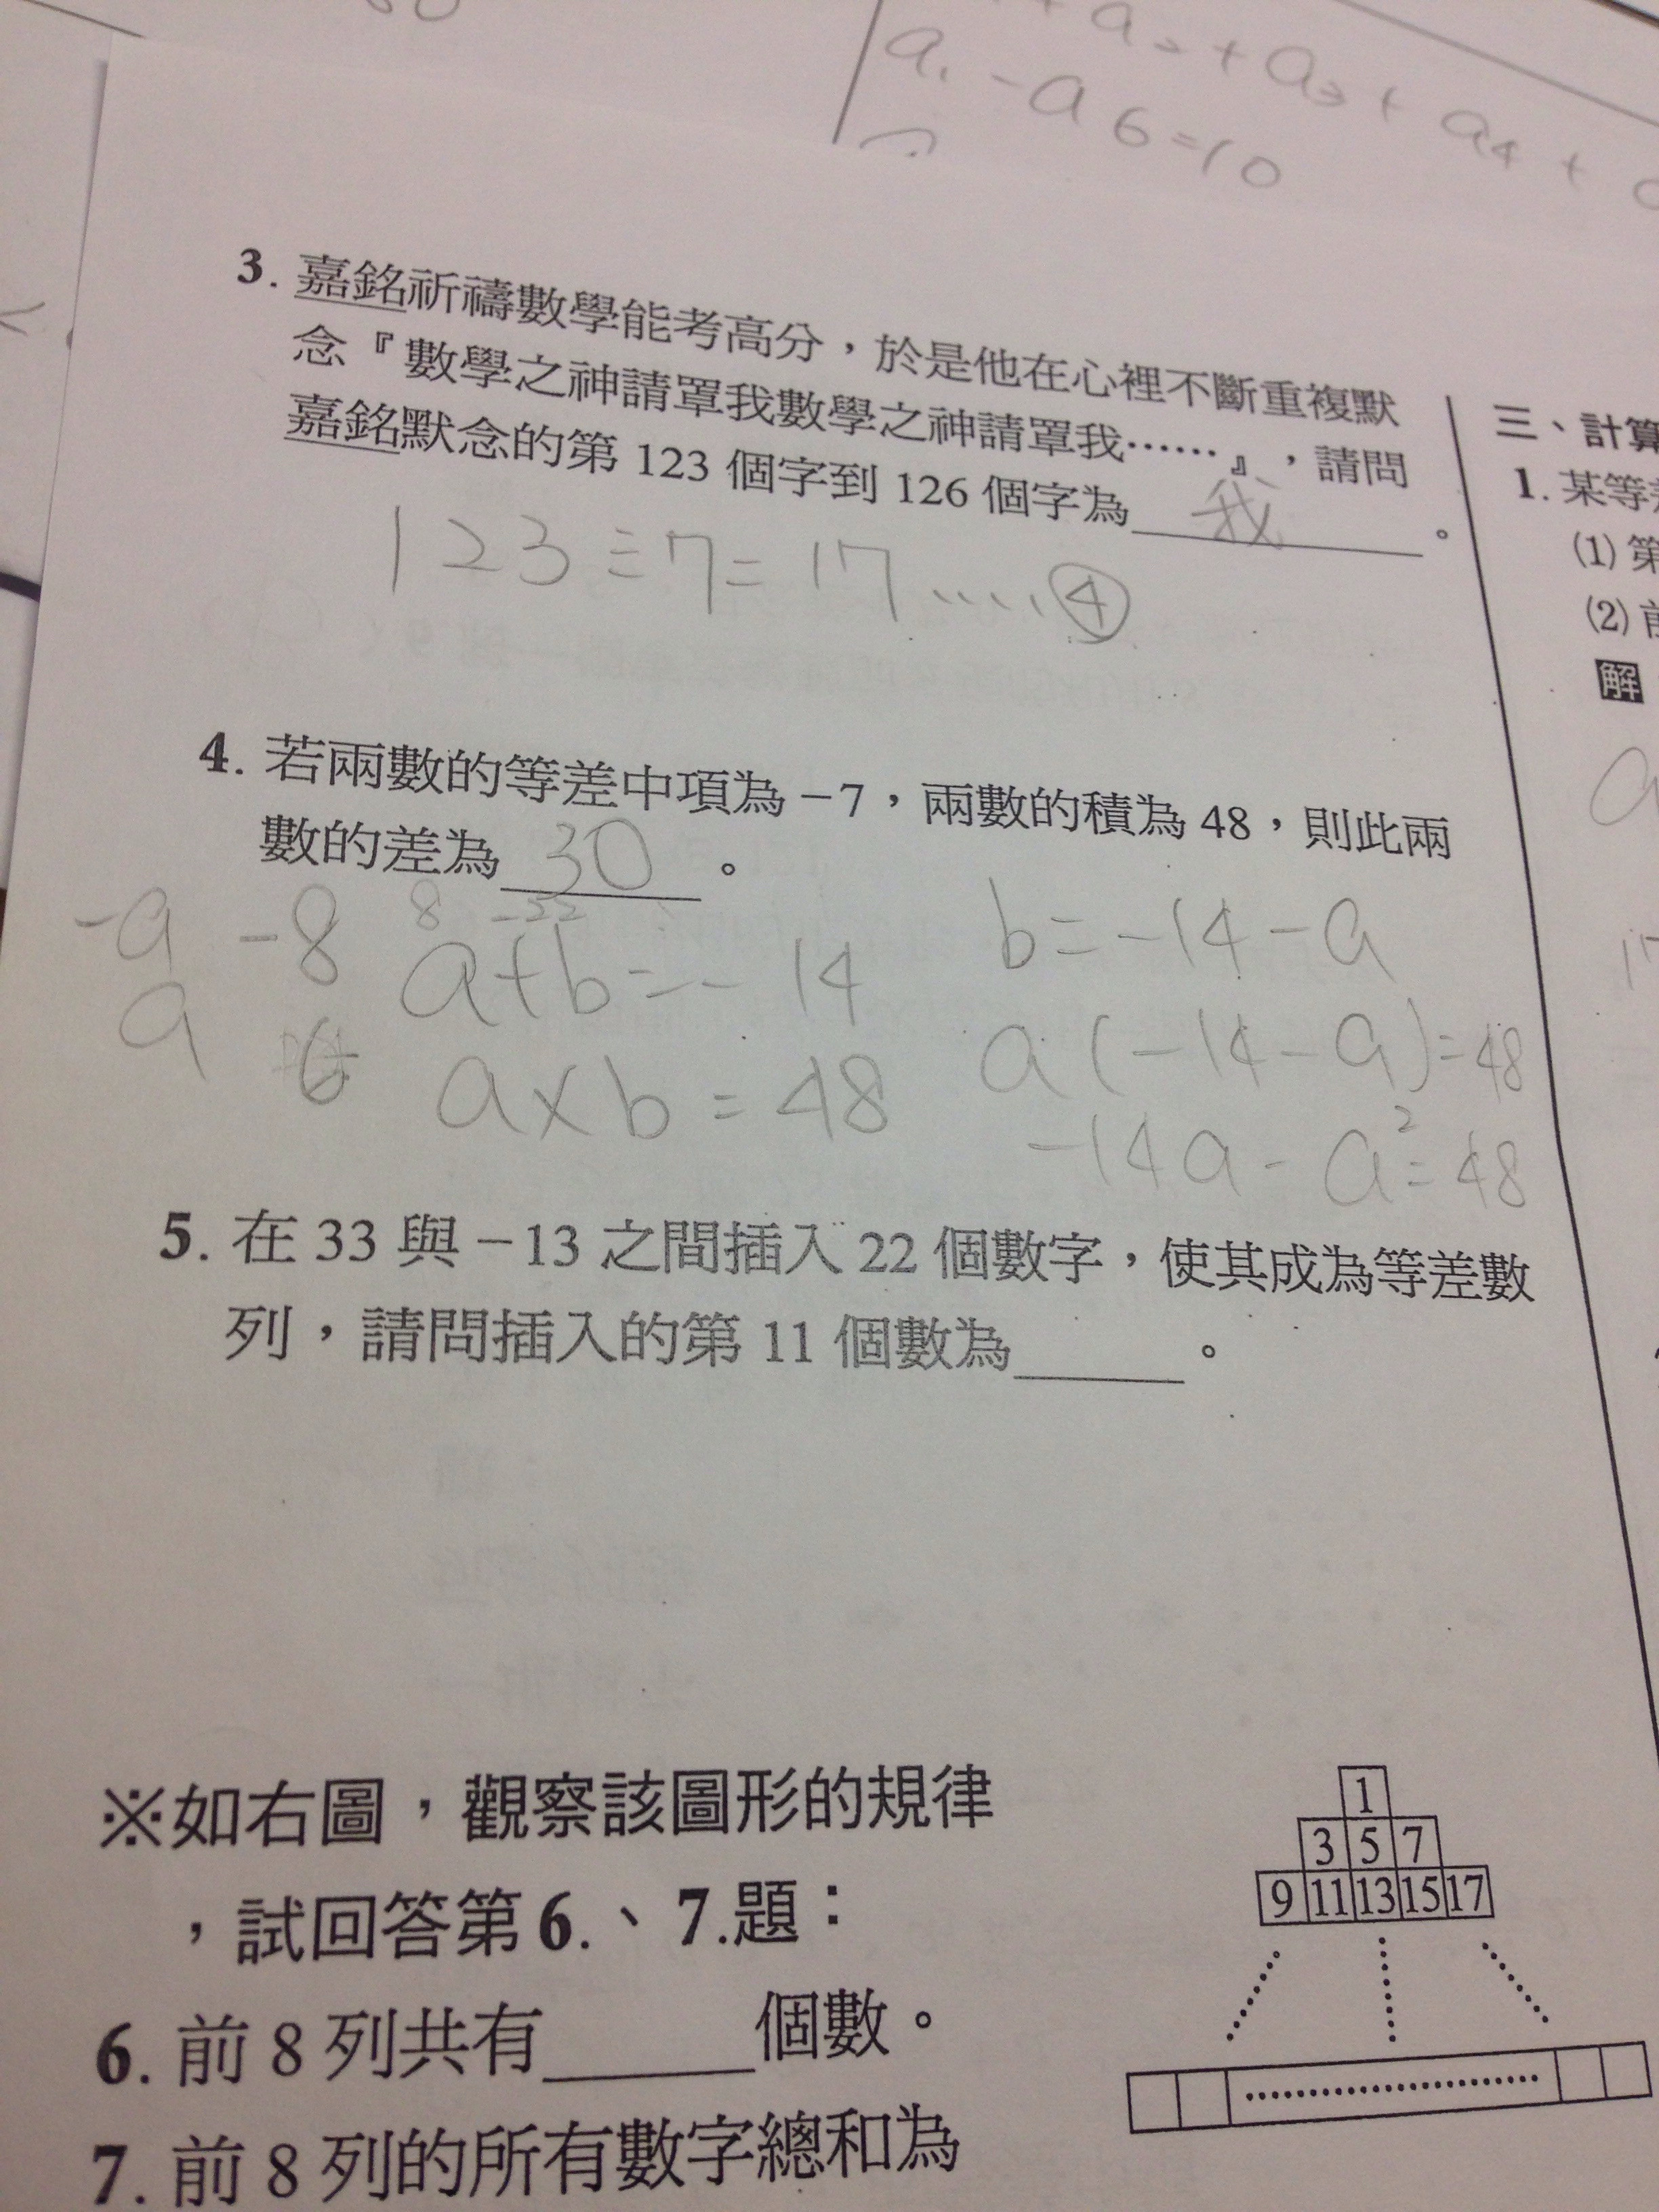 + a₂ + a₃ + a₄ +
a₁ - a6 = 10
3. 嘉銘祈禱數學能考高分，於是他在心裡不斷重複默
念『數學之神請罩我數學之神請罩我……』，請問
嘉銘默念的第 123 個字到 126 個字為 我 。
123÷7=17.....④
4. 若兩數的等差中項為 −7，兩數的積為 48，則此兩
數的差為 30 。
8 -22
-a -8 a+b=-14
a 6 a×b=48
b=-14-a
a(-14-a)=48
-14a-a²=48
5. 在 33 與 −13 之間插入 22 個數字，使其成為等差數
列，請問插入的第 11 個數為 。
※如右圖，觀察該圖形的規律
，試回答第 6.、7.題：
6. 前 8 列共有 個數。
7. 前 8 列的所有數字總和為
1
3 5 7
9 11 13 15 17
三、計算
1. 某等
(1) 第
(2) 前
解
a